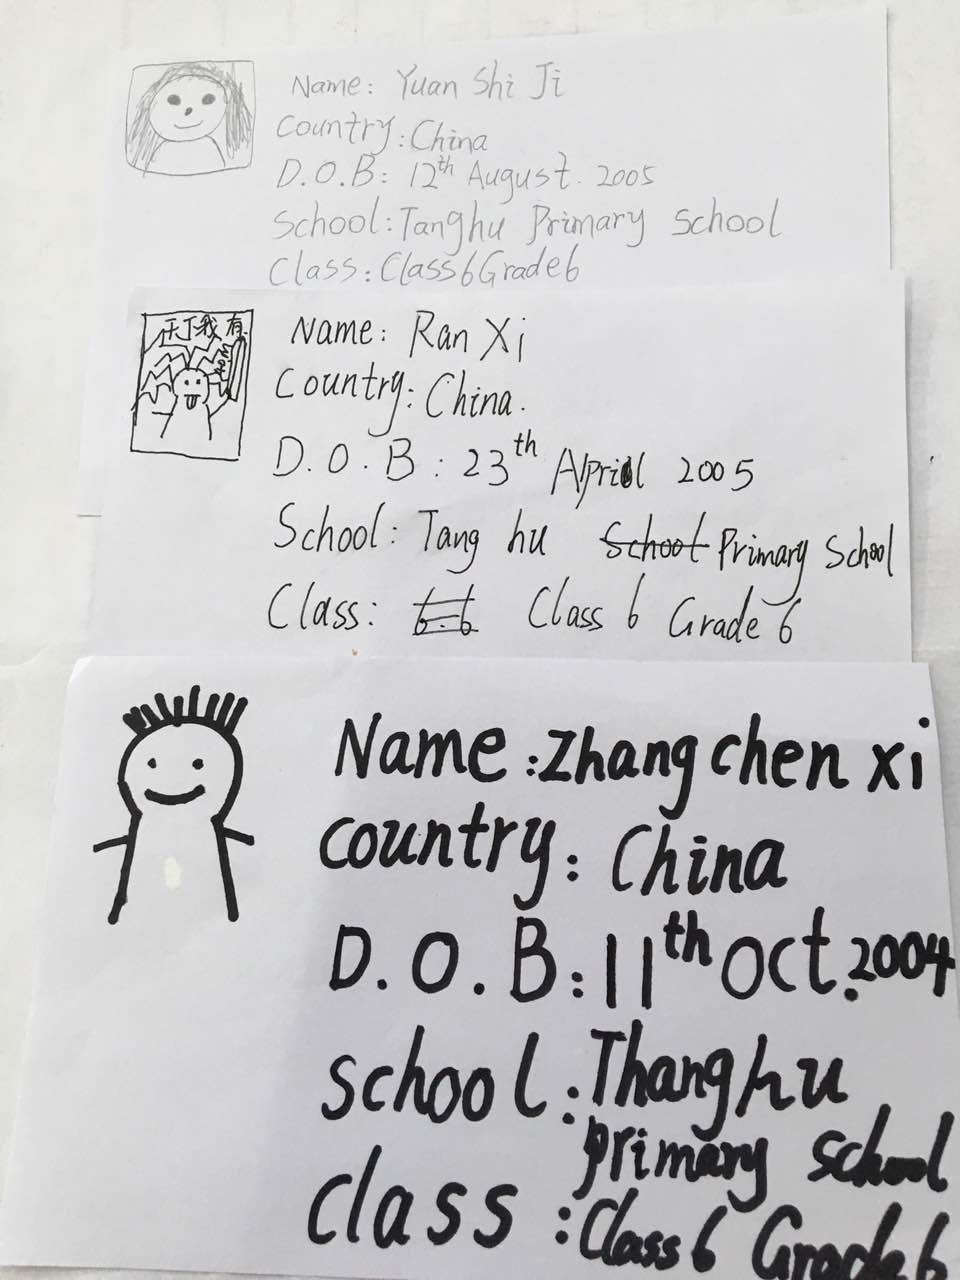 Name: Yuan Shi Ji
Country: China
D.O.B: 12th August. 2005
School: Tanghu Primary School
Class: Class6Grade6
Name: Ran Xi
Country: China.
D.O.B: 23th April 2005
School: Tang hu School Primary School
Class: 6.6 Class 6 Grade 6
Name: Zhang chen xi
country: China
D.O.B: 11th Oct. 2004
school: Thanghu
primary school
class: Class 6 Grade 6